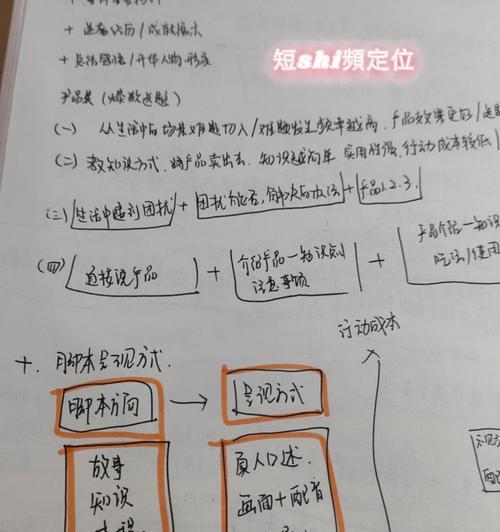 + 选名经历/成就展示
+ 总结感悟/升华人物形象
短shi頻定位
产品类（爆款选题）
（一） 从生活中的场景难题切入/难题发生频率越高，产品效果更好/
（二） 教知识方式，将产品卖出去，知识越简单 实用性强，行动成本较低/
（三） 生活中遇到困扰 + 困扰介绍，解决的办法 + 产品1.2.3.
（四） 直接说产品 + 介绍产品—知识点 注意事项 + 产品介绍—知识 吃法/使用
行动成本
十. 脚本呈现方式.
脚本方向 → 呈现方式
故事 真人口述.
知识 画面+配音